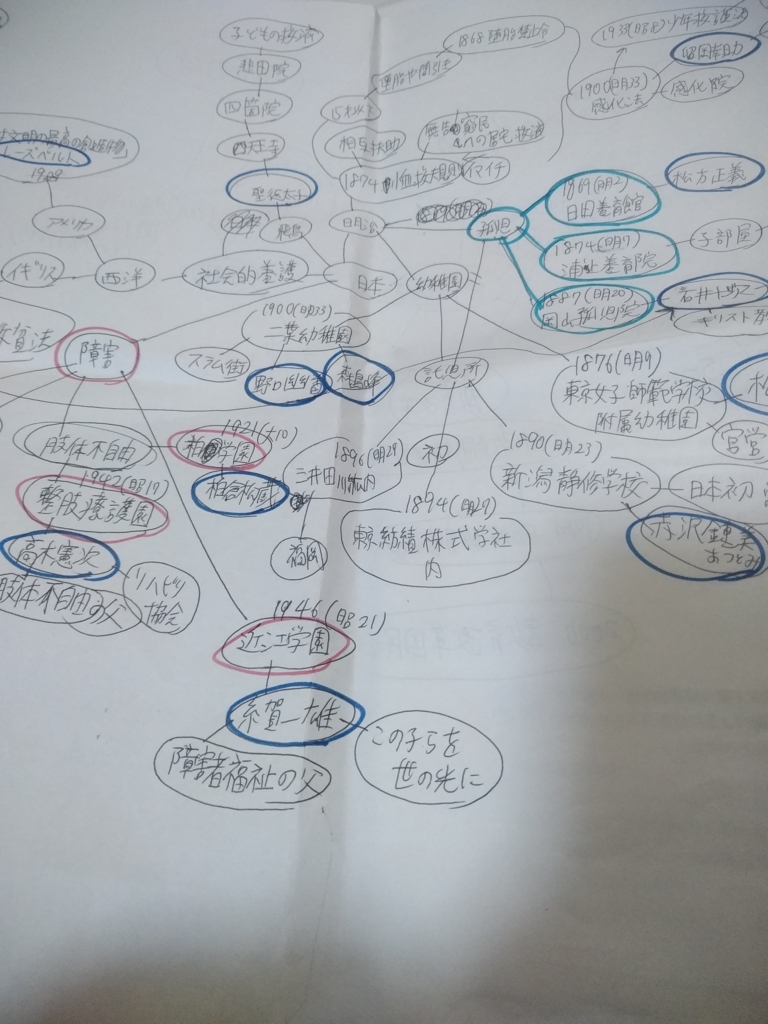 子どもの救済
悲田院
四箇院
四天王寺
聖徳太子
飛鳥
1868 堕胎禁止令
堕胎や間引き
15才以上
相互扶助
無告の窮民
への居宅救済
1874
イマイチ
明治
1900(明33)
感化法
感化院
孤児
1869(明2)
日田養育館
松方正義
1874(明7)
浦上養育院
子部屋
1887(明20)
岡山孤児院
1909
アメリカ
イギリス
西洋
社会的養護
日本
幼稚園
1900(明33)
二葉幼稚園
スラム街
野口幽香
森島峰
託児所
障害
1876(明9)
東京女子師範学校
附属幼稚園
官営
肢体不自由
1921(大10)
柏学園
柏倉松蔵
1942(昭17)
整肢療護園
高木憲次
肢体不自由の父
リハビリ
協会
1896(明29)
三井田川炭鉱内
福岡
初
1894(明27)
東京紡績株式学社
内
1890(明23)
新潟静修学校
日本初
赤沢鍾美
あつとみ
1946(昭21)
近江学園
糸賀一雄
障害者福祉の父
この子らを
世の光に